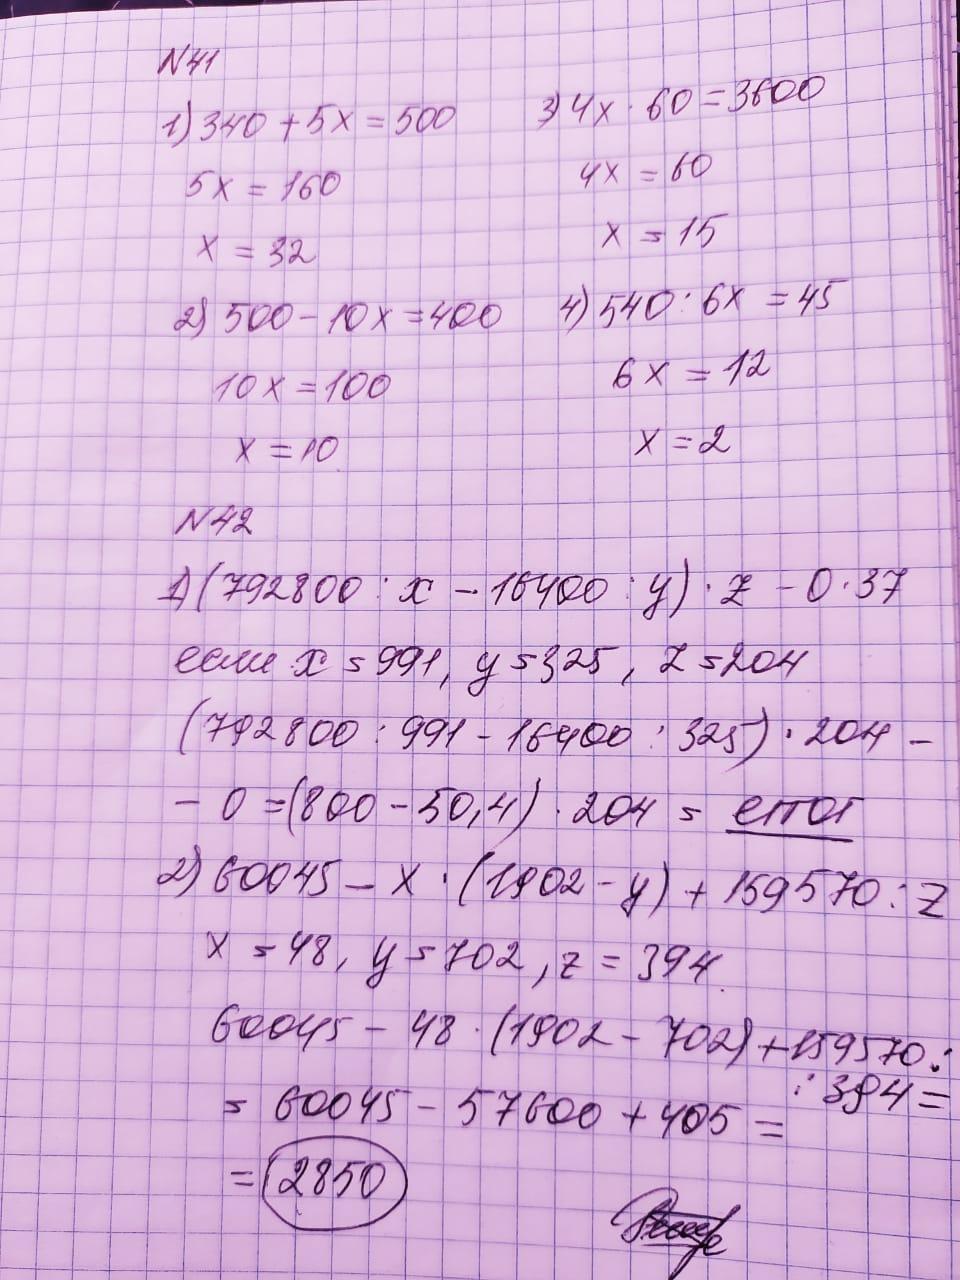 N41
1) 340 + 5x = 500
5x = 160
x = 32
2) 500 - 10x = 400
10x = 100
x = 10
3) 4x · 60 = 3600
4x = 60
x = 15
4) 540 : 6x = 45
6x = 12
x = 2
N42
1) (792800 : x - 16400 : y) · z - 0 · 37
если x = 991, y = 325, z = 204
(792800 : 991 - 16400 : 325) · 204 -
- 0 = (800 - 50,4) · 204 = error
2) 60045 - x · (1902 - y) + 159570 : z
x = 48, y = 702, z = 394
60045 - 48 · (1902 - 702) + 159570 :
: 394 =
= 60045 - 57600 + 405 =
= 2850